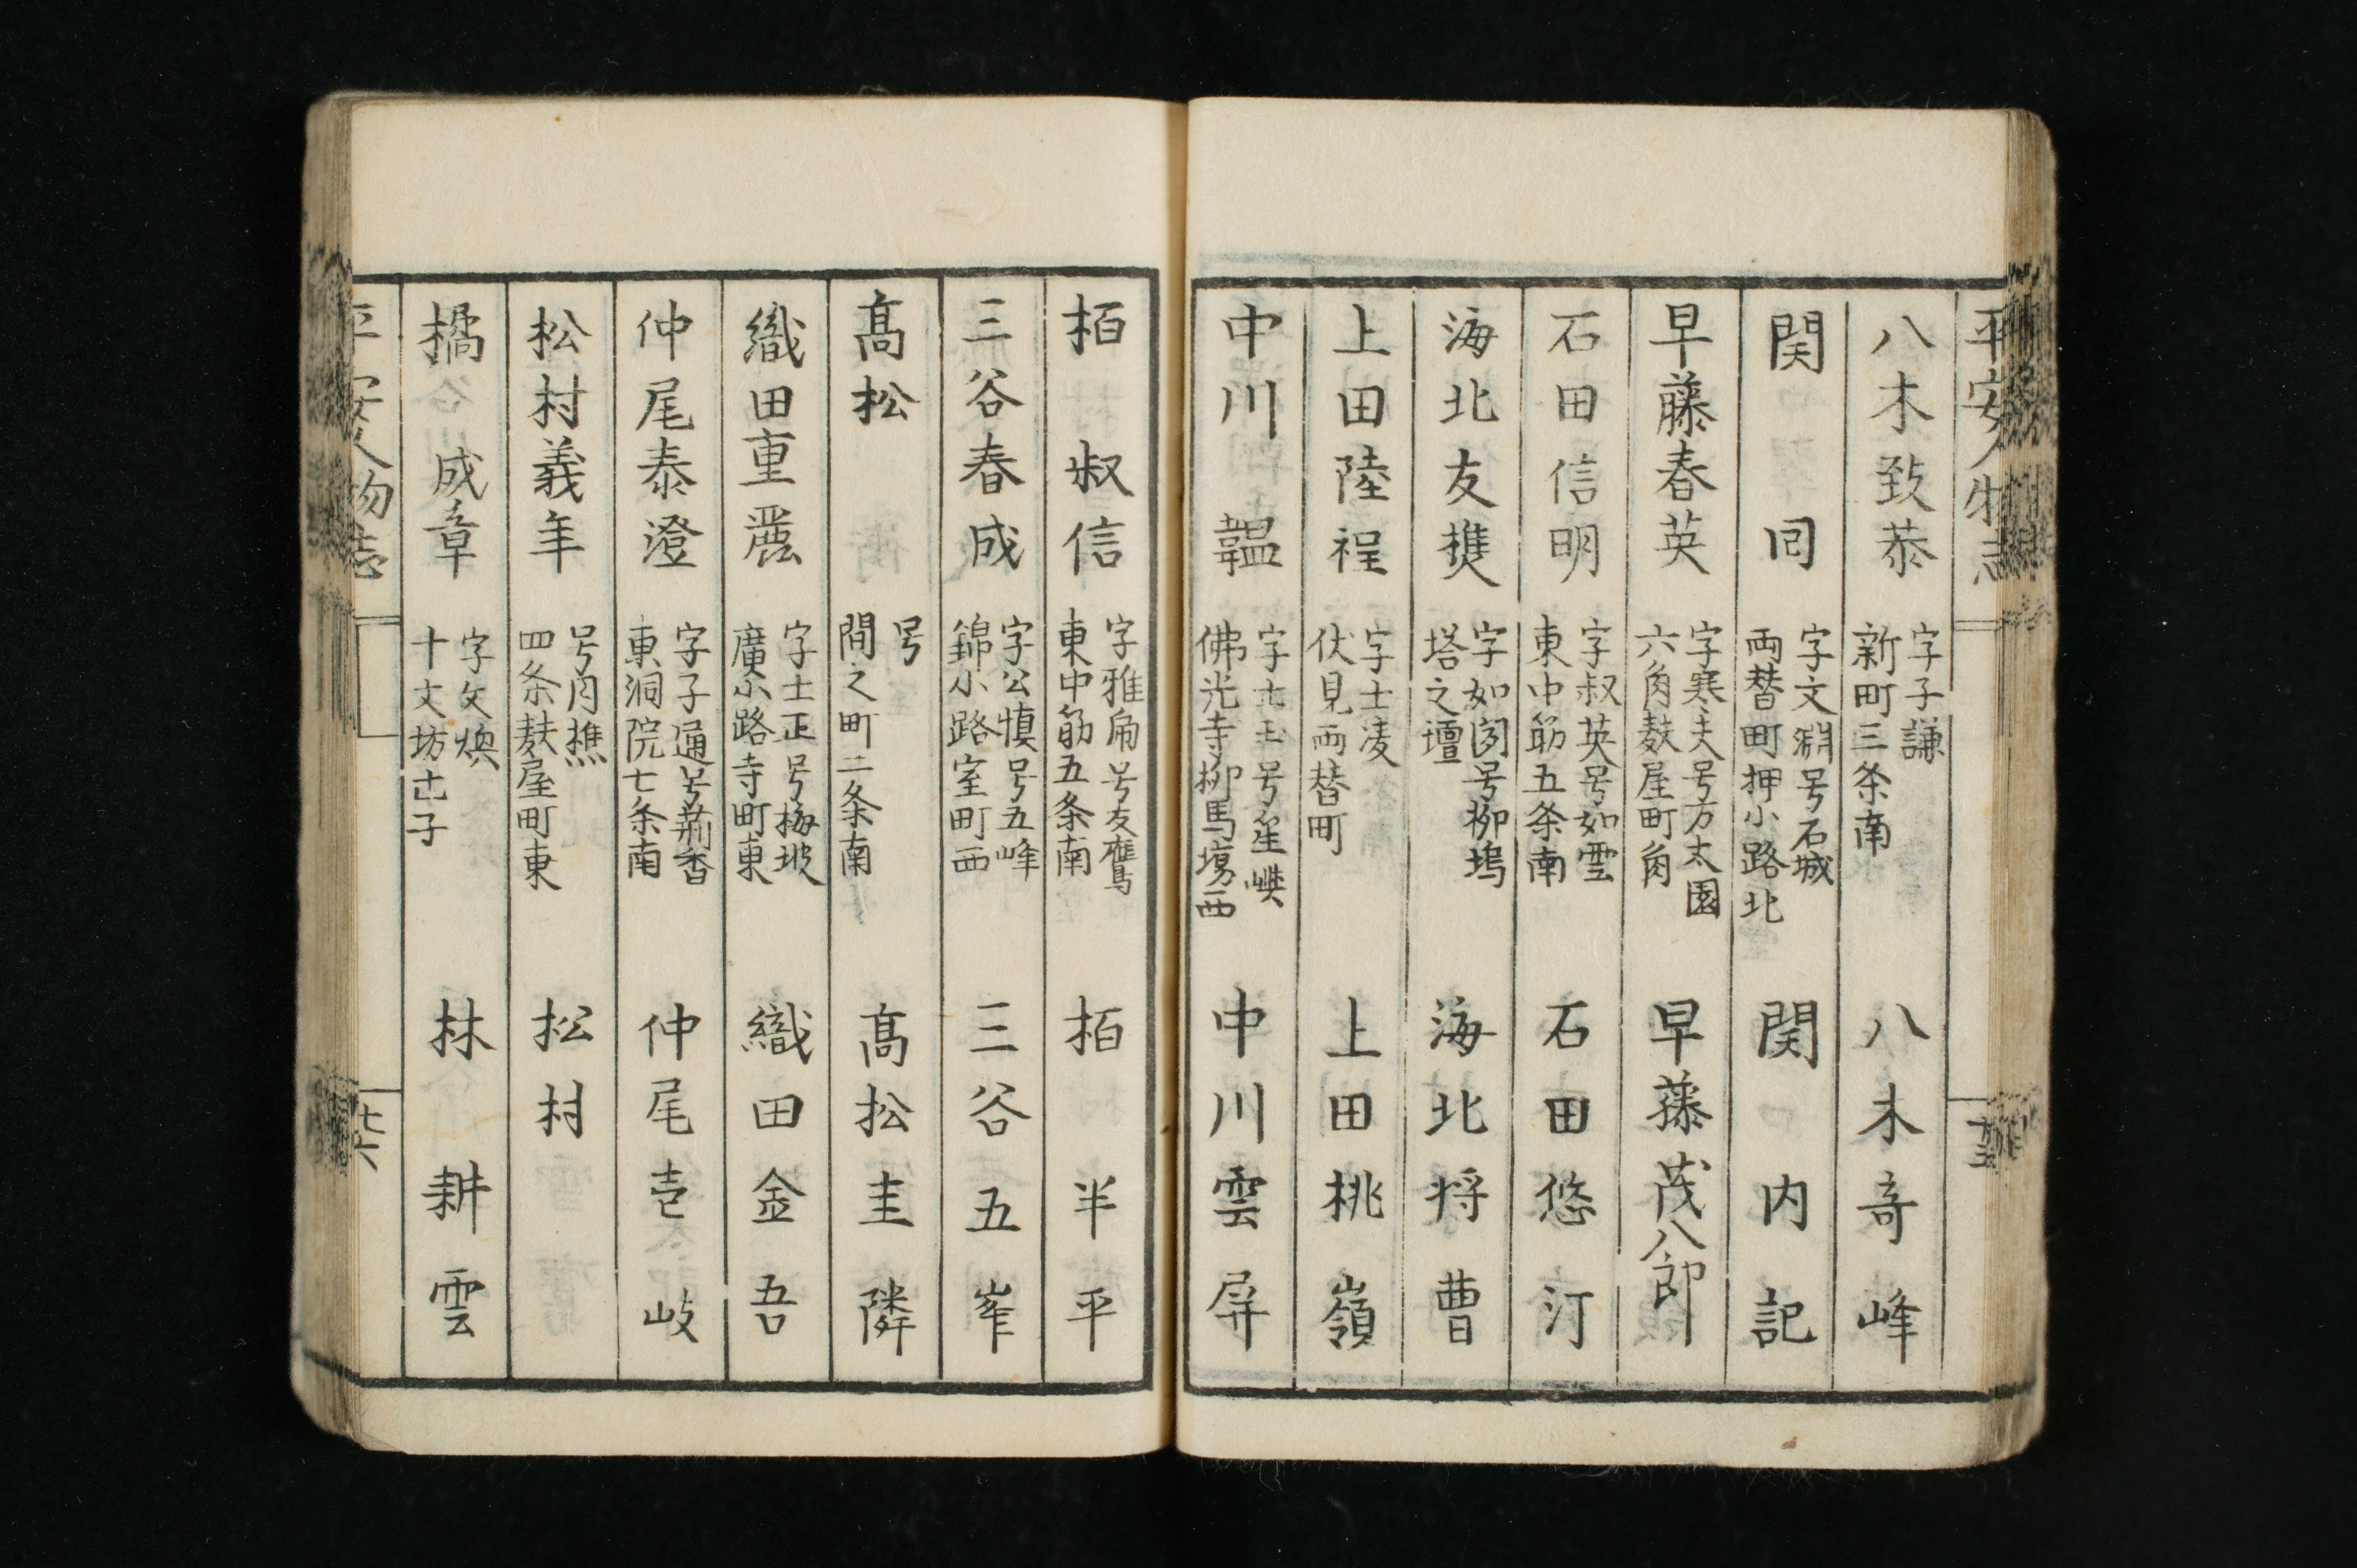 平安人物志
八木致恭
字子謙
新町三条南
八木奇峰
関同
字文淵号石城
両替町押小路北
関内記
早藤春英
字寒夫号方太園
六角麸屋町角
早藤茂八郎
石田信明
字叔英号如雲
東中筋五条南
石田悠汀
海北友樵
字如図号柳塢
塔之壇
海北将曹
上田陸程
字士凌
伏見両替町
上田桃嶺
中川韞
字士玉号笙嶼
佛光寺柳馬場西
中川雲屏
栢叔信
字雅帛号友鷹
東中筋五条南
栢半平
三谷春成
字公慎号五峰
錦小路室町西
三谷五峯
髙松
号
間之町二条南
髙松圭隣
織田重麗
字士正号梅坡
廣小路寺町東
織田金吾
仲尾泰澄
字子通号荊香
東洞院七条南
仲尾壱岐
松村義年
号月樵
四条麸屋町東
松村
橘成章
字文煥
十文坊辻子
林耕雲
平安人物志